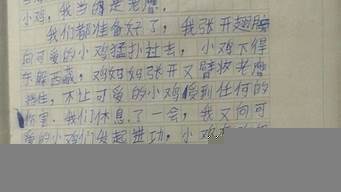 小鸡，我当的是老鹰。
我们都准备好了，我张开翅膀
向可爱的小鸡猛扑过去，小鸡下得
东躲西藏，鸡妈妈张开又臂将老鹰
挡住，不让可爱的小鸡受到任何的
伤害，我们休息了一会，我又向可
爱的小鸡们发起进功，小鸡